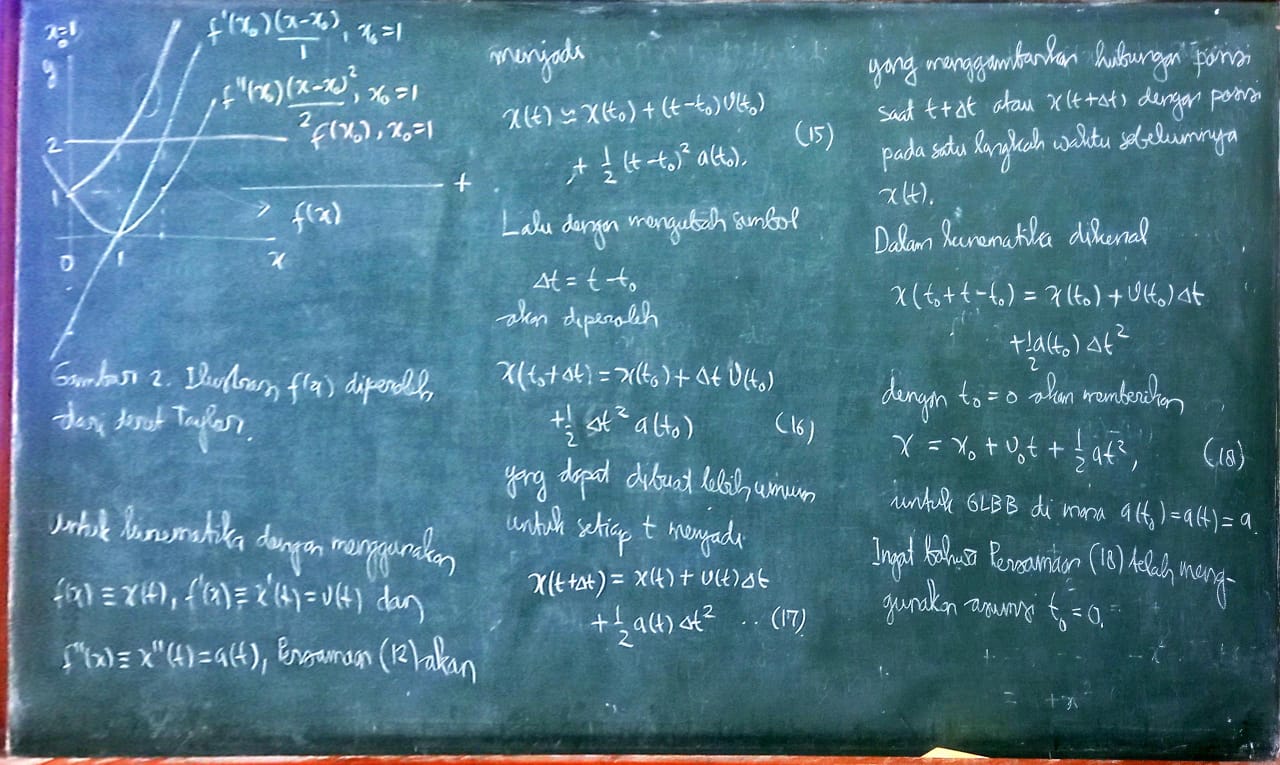 x₀=1
y
f'(x₀)(x-x₀)/1, x₀=1
f''(x₀)(x-x₀)²/2, x₀=1
f(x₀), x₀=1
2
1
+
f(x)
0 1 x
Gambar 2. Ilustrasi f(x) diperoleh
dari deret Taylor.
untuk kinematika dengan menggunakan
f(x) ≡ x(t), f'(x) ≡ x'(t) = v(t) dan
f''(x) ≡ x''(t) = a(t), Persamaan (12) akan
menjadi
x(t) ≃ x(t₀) + (t-t₀) v(t₀)
+ 1/2 (t-t₀)² a(t₀). (15)
Lalu dengan mengubah simbol
Δt = t - t₀
akan diperoleh
x(t₀+Δt) = x(t₀) + Δt v(t₀)
+ 1/2 Δt² a(t₀) (16)
yang dapat dibuat lebih umum
untuk setiap t menjadi
x(t+Δt) = x(t) + v(t) Δt
+ 1/2 a(t) Δt² .. (17)
yang menggambarkan hubungan posisi
saat t+Δt atau x(t+Δt) dengan posisi
pada satu langkah waktu sebelumnya
x(t).
Dalam kinematika dikenal
x(t₀+t-t₀) = x(t₀) + v(t₀) Δt
+ 1/2 a(t₀) Δt²
dengan t₀ = 0 akan memberikan
x = x₀ + v₀t + 1/2 at², (18)
untuk GLBB di mana a(t₀) = a(t) = a.
Ingat bahwa Persamaan (18) telah meng-
gunakan asumsi t₀ = 0.